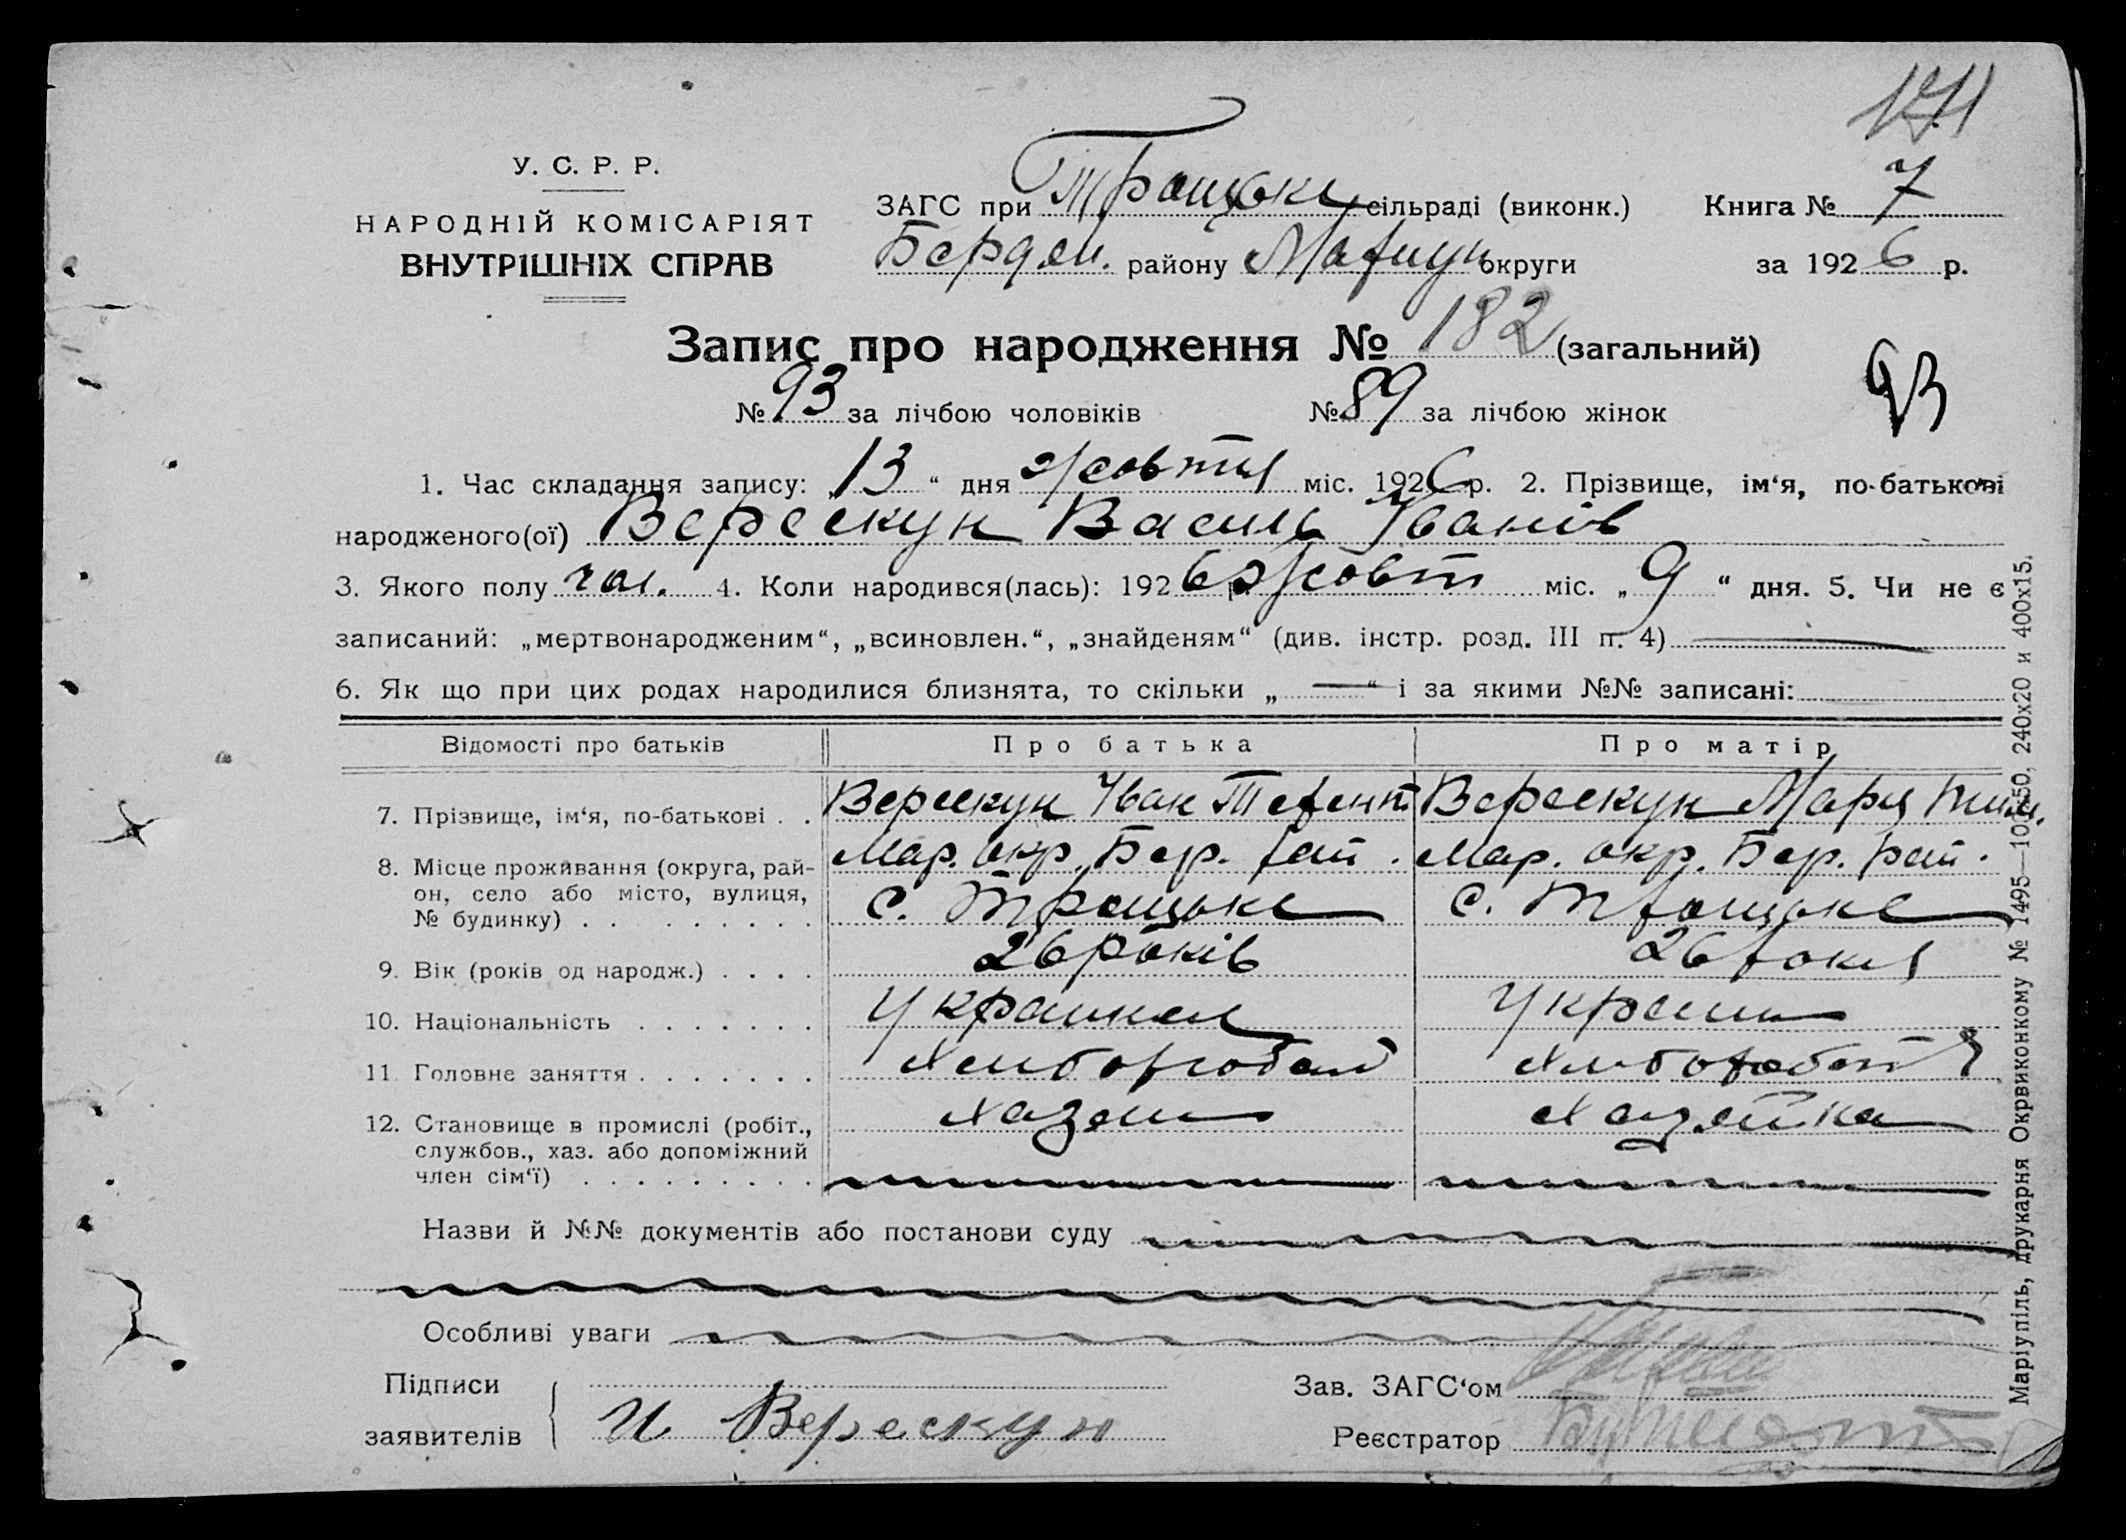 У. С. Р. Р.
НАРОДНІЙ КОМІСАРІЯТ
ВНУТРІШНІХ СПРАВ
ЗАГС при Троцькі сільраді (виконк.) Книга № 7
Бердян. району Маріуп округи за 1926 р.
Запис про народження № 182 (загальний)
№ 93 за лічбою чоловіків № 89 за лічбою жінок
93
1. Час складання запису: „13“ дня жовтня міс. 1926 р. 2. Прізвище, ім‘я, по-батькові
народженого(ої) Верескун Василь Іванів
3. Якого полу чол. 4. Коли народився(лась): 1926 р. жовт міс. „9“ дня. 5. Чи не є
записаний: „мертвонародженим“, „всиновлен.“, „знайденям“ (див. інстр. розд. III п. 4)
6. Як що при цих родах народилися близнята, то скільки „ — “ і за якими №№ записані:
Відомості про батьків Про батька Про матір
7. Прізвище, ім‘я, по-батькові . . Верескун Іван Терент Верескун Марія Тим.
8. Місце проживання (округа, рай-
он, село або місто, вулиця,
№ будинку) . . . . . . . . . Мар. окр. Бер. рай. Мар. окр. Бер. рай.
с. Троцьке с. Троцьке
9. Вік (років од народж.) . . . . 26 років 26 років
10. Національність . . . . . . .
11. Головне заняття . . . . . . . Хлібороб
12. Становище в промислі (робіт.,
службов., хаз. або допоміжний
член сім‘ї) . . . . . . . . . хазяїн хазяйка
Назви й №№ документів або постанови суду
Особливі уваги
Підписи
заявителів И Верескун
Зав. ЗАГС‘ом
Реєстратор
Маріупіль, друкарня Окрвиконкому № 1495—10550, 240x20 и 400x15.